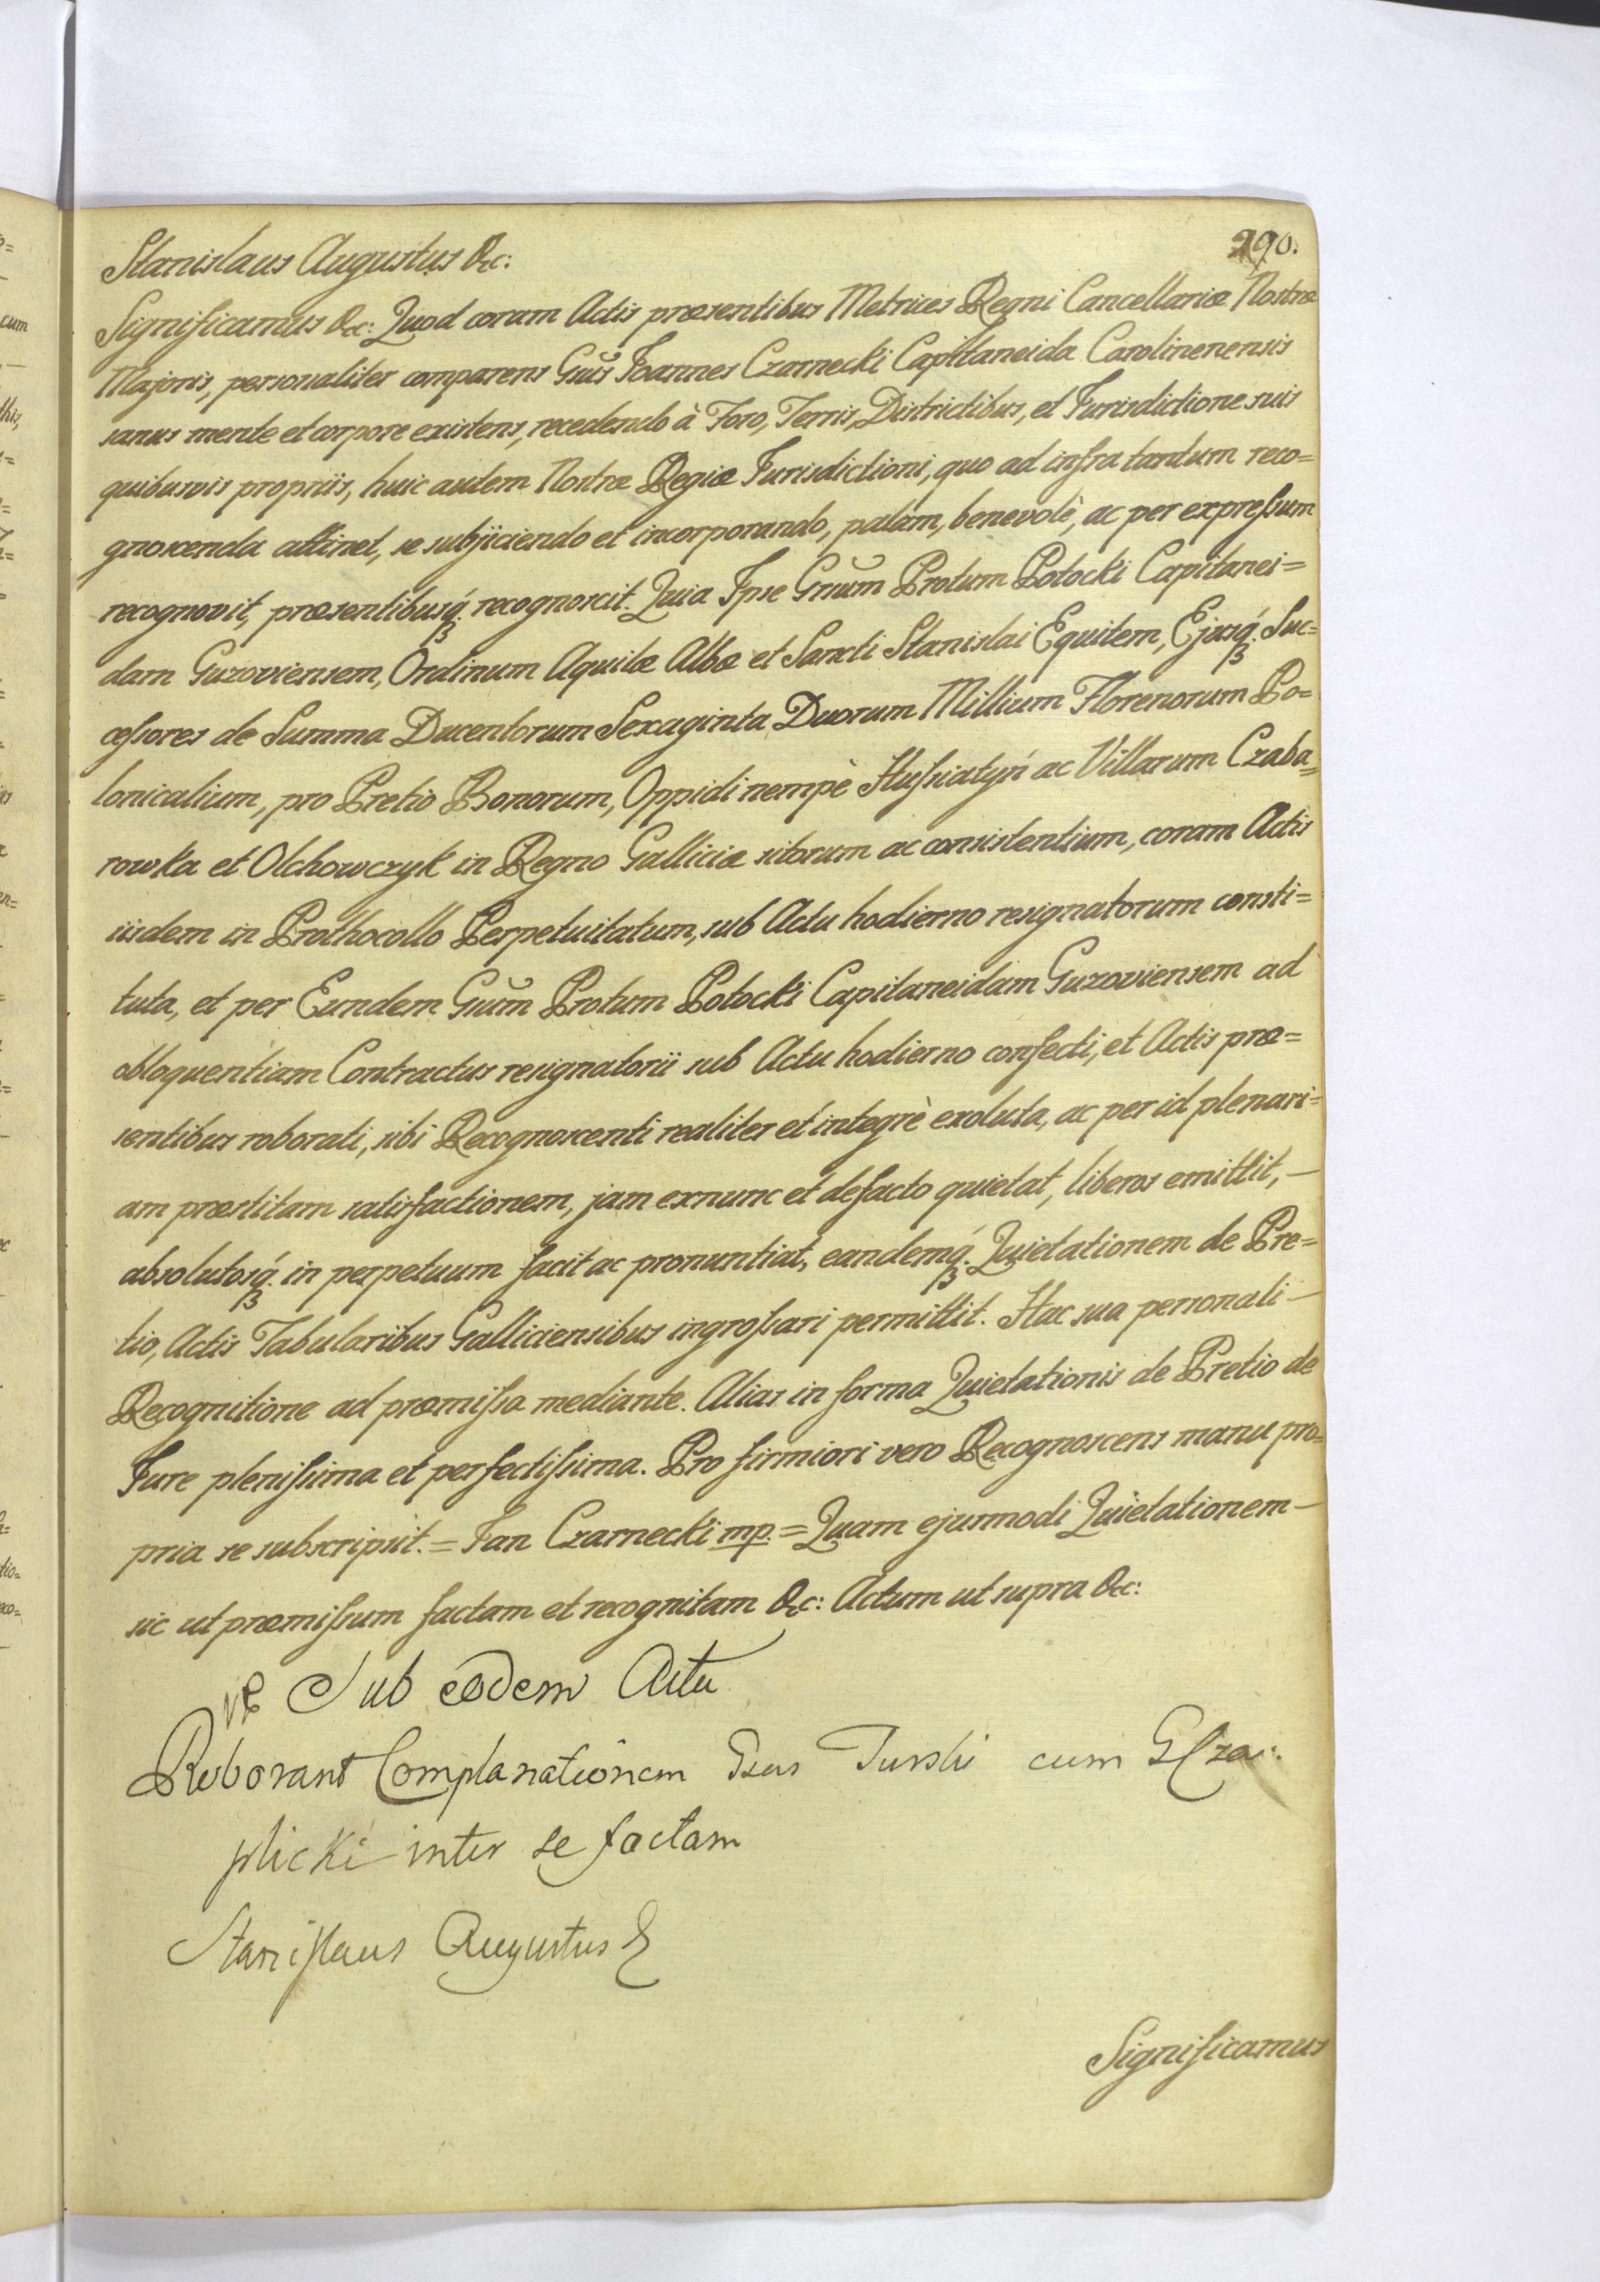 290.
Stanislaus Augustus &c:
Significamus &c: Quod coram Actis præsentibus Metrices Regni Cancellariæ Nostræ
Majoris, personaliter comparens Gñus Joannes Czarnecki Capitaneida Carolinenensis
sanus mente et corpore existens, recedendo à Foro, Terris, Districtibus, et Jurisdictione suis
quibusvis propriis, huic autem Nostræ Regiæ Jurisdictioni, quo ad infra tantum reco=
gnoscenda attinet, se subjiciendo et incorporando, palam, benevolè, ac per expressum
recognovit, præsentibusq́ꝫ recognoscit. Quia Ipse Gñum Protum Potocki Capitanei=
dam Guzoviensem, Ordinum Aquilæ Albæ et Sancti Stanislai Equitem, Ejusq́ꝫ Suc=
cessores de Summa Ducentorum Sexaginta Duorum Millium Florenorum Po=
lonicalium, pro Pretio Bonorum, Oppidi nempè Hussiatyń ac Villarum Czaba=
rowka et Olchowczyk in Regno Galliciæ sitorum ac consistentium, coram Actis
iisdem in Prothocollo Perpetuitatum, sub Actu hodierno resignatorum consti=
tuta, et per Eundem Gñum Protum Potocki Capitaneidam Guzoviensem ad
obloquentiam Contractus resignatorii sub Actu hodierno confecti, et Actis præ=
sentibus roborati, sibi Recognoscenti realiter et integrè exoluta, ac per id plenari=
am præstitam satisfactionem, jam exnunc et defacto quietat, liberos emittit, —
absolutosq́ꝫ in perpetuum facit ac pronuntiat, eandemq́ꝫ Quietationem de Pre=
tio, Actis Tabularibus Galliciensibus ingrossari permittit. Hac sua personali —
Recognitione ad præmissa mediante. Alias in forma Quietationis de Pretio de
Jure plenissima et perfectissima. Pro firmiori vero Recognoscens manu pro=
pria se subscripsit. = Jan Czarnecki mp. = Quam ejusmodi Quietationem —
sic ut præmissum factam et recognitam &c: Actum ut supra &c:
Sub eodem Actu
Roborant Complanationem Gsus Turski cum G Cza=
plicki inter se factam
Stanislaus Augustus &
Significamus